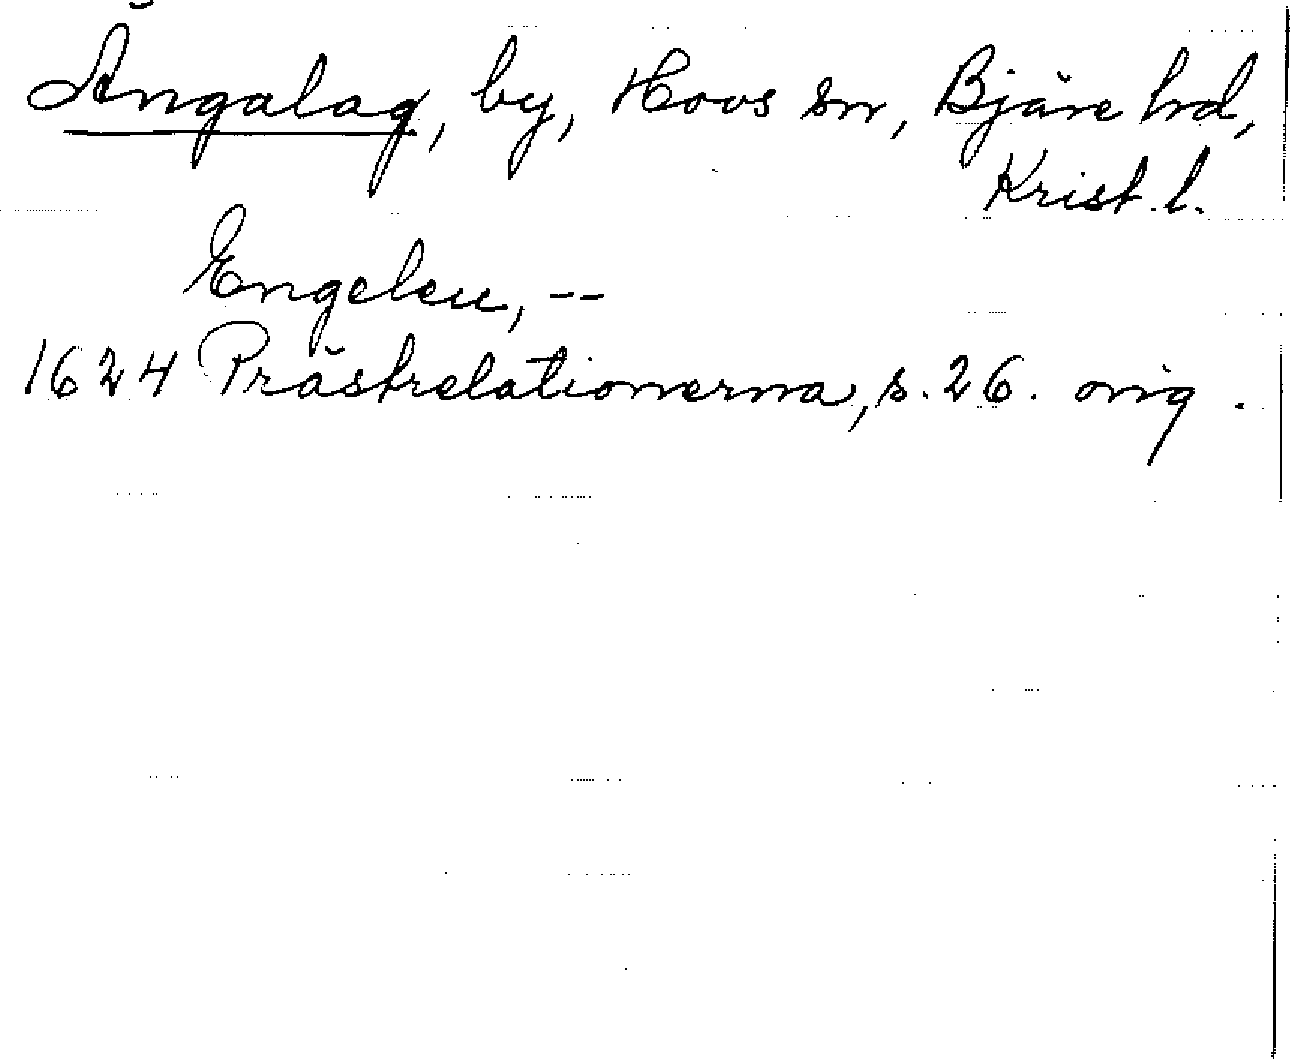 Ängalag, by, Hovs sn, Bjäre hd,
Krist. l.
Engeleu, --
1624 Prästrelationerna, s. 26. orig.